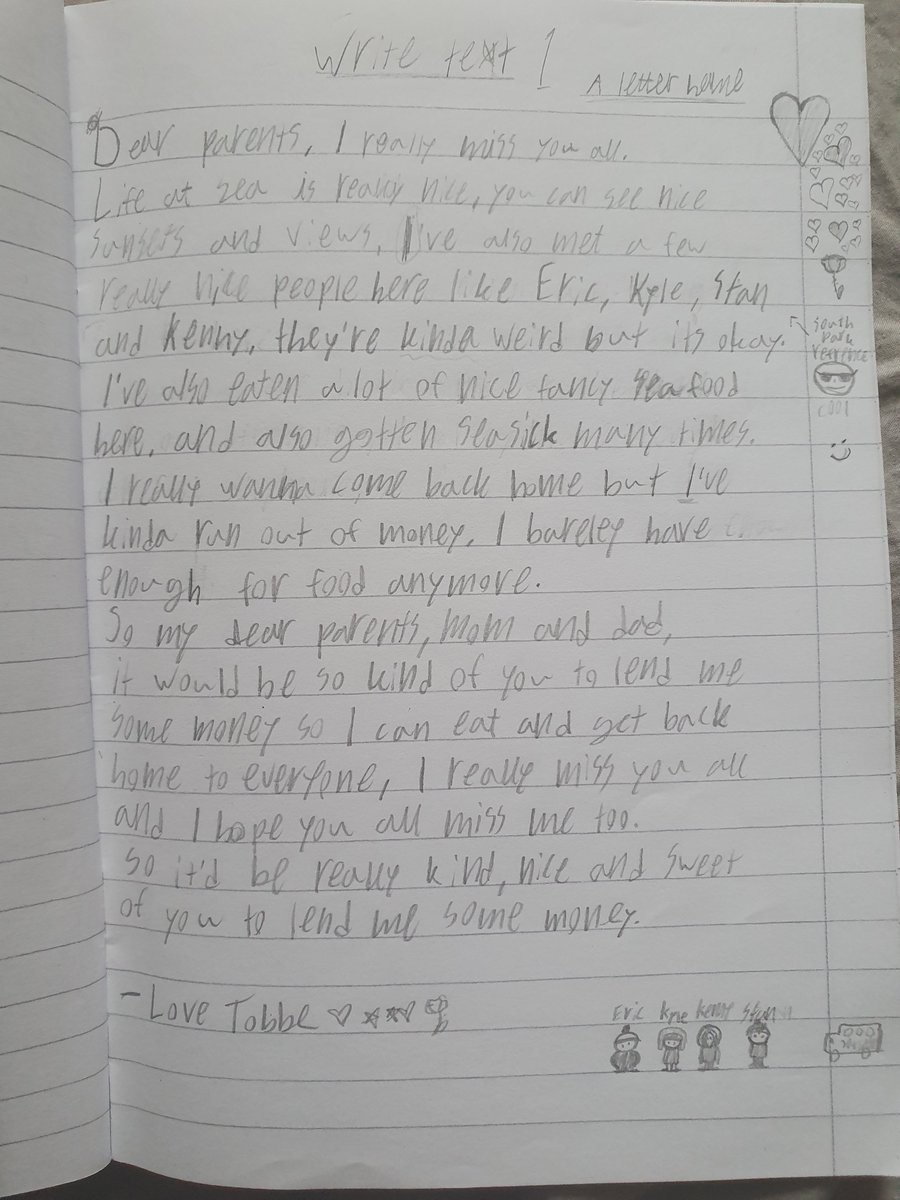 Write text 1
A letter home
Dear parents, I really miss you all.
Life at sea is really nice, you can see nice
sunsets and views, I've also met a few
really nice people here like Eric, Kyle, Stan
and Kenny, they're kinda weird but its okay.
South
Park
reference
I've also eaten a lot of nice fancy sea food
cool
here, and also gotten seasick many times.
:)
I really wanna come back home but I've
kinda run out of money, I bareley have
enough for food anymore.
So my dear parents, mom and dad,
it would be so kind of you to lend me
some money so I can eat and get back
home to everyone, I really miss you all
and I hope you all miss me too.
so it'd be really kind, nice and sweet
of you to lend me some money.
- Love Tobbe
Eric Kyle Kenny Stan